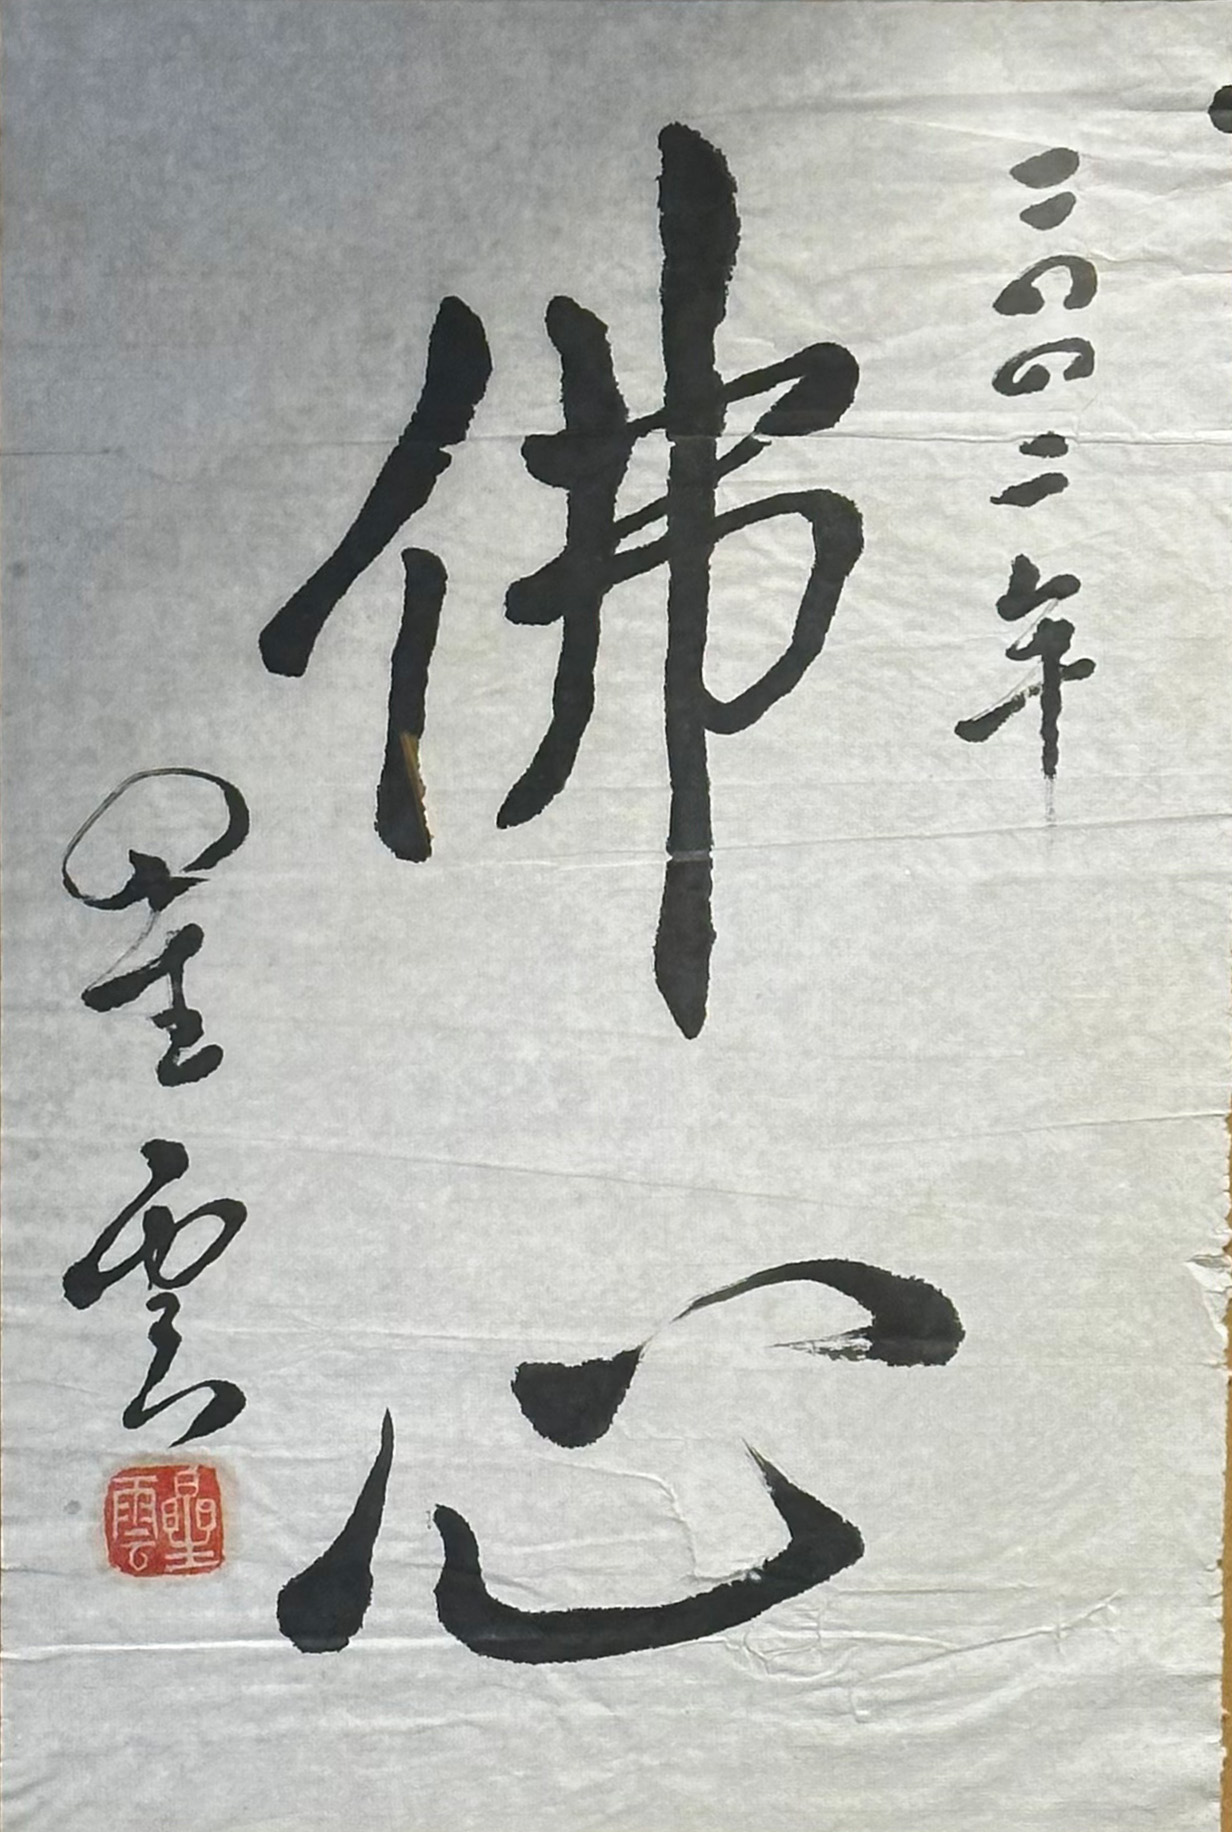 二〇〇二年
佛心
星雲
星雲